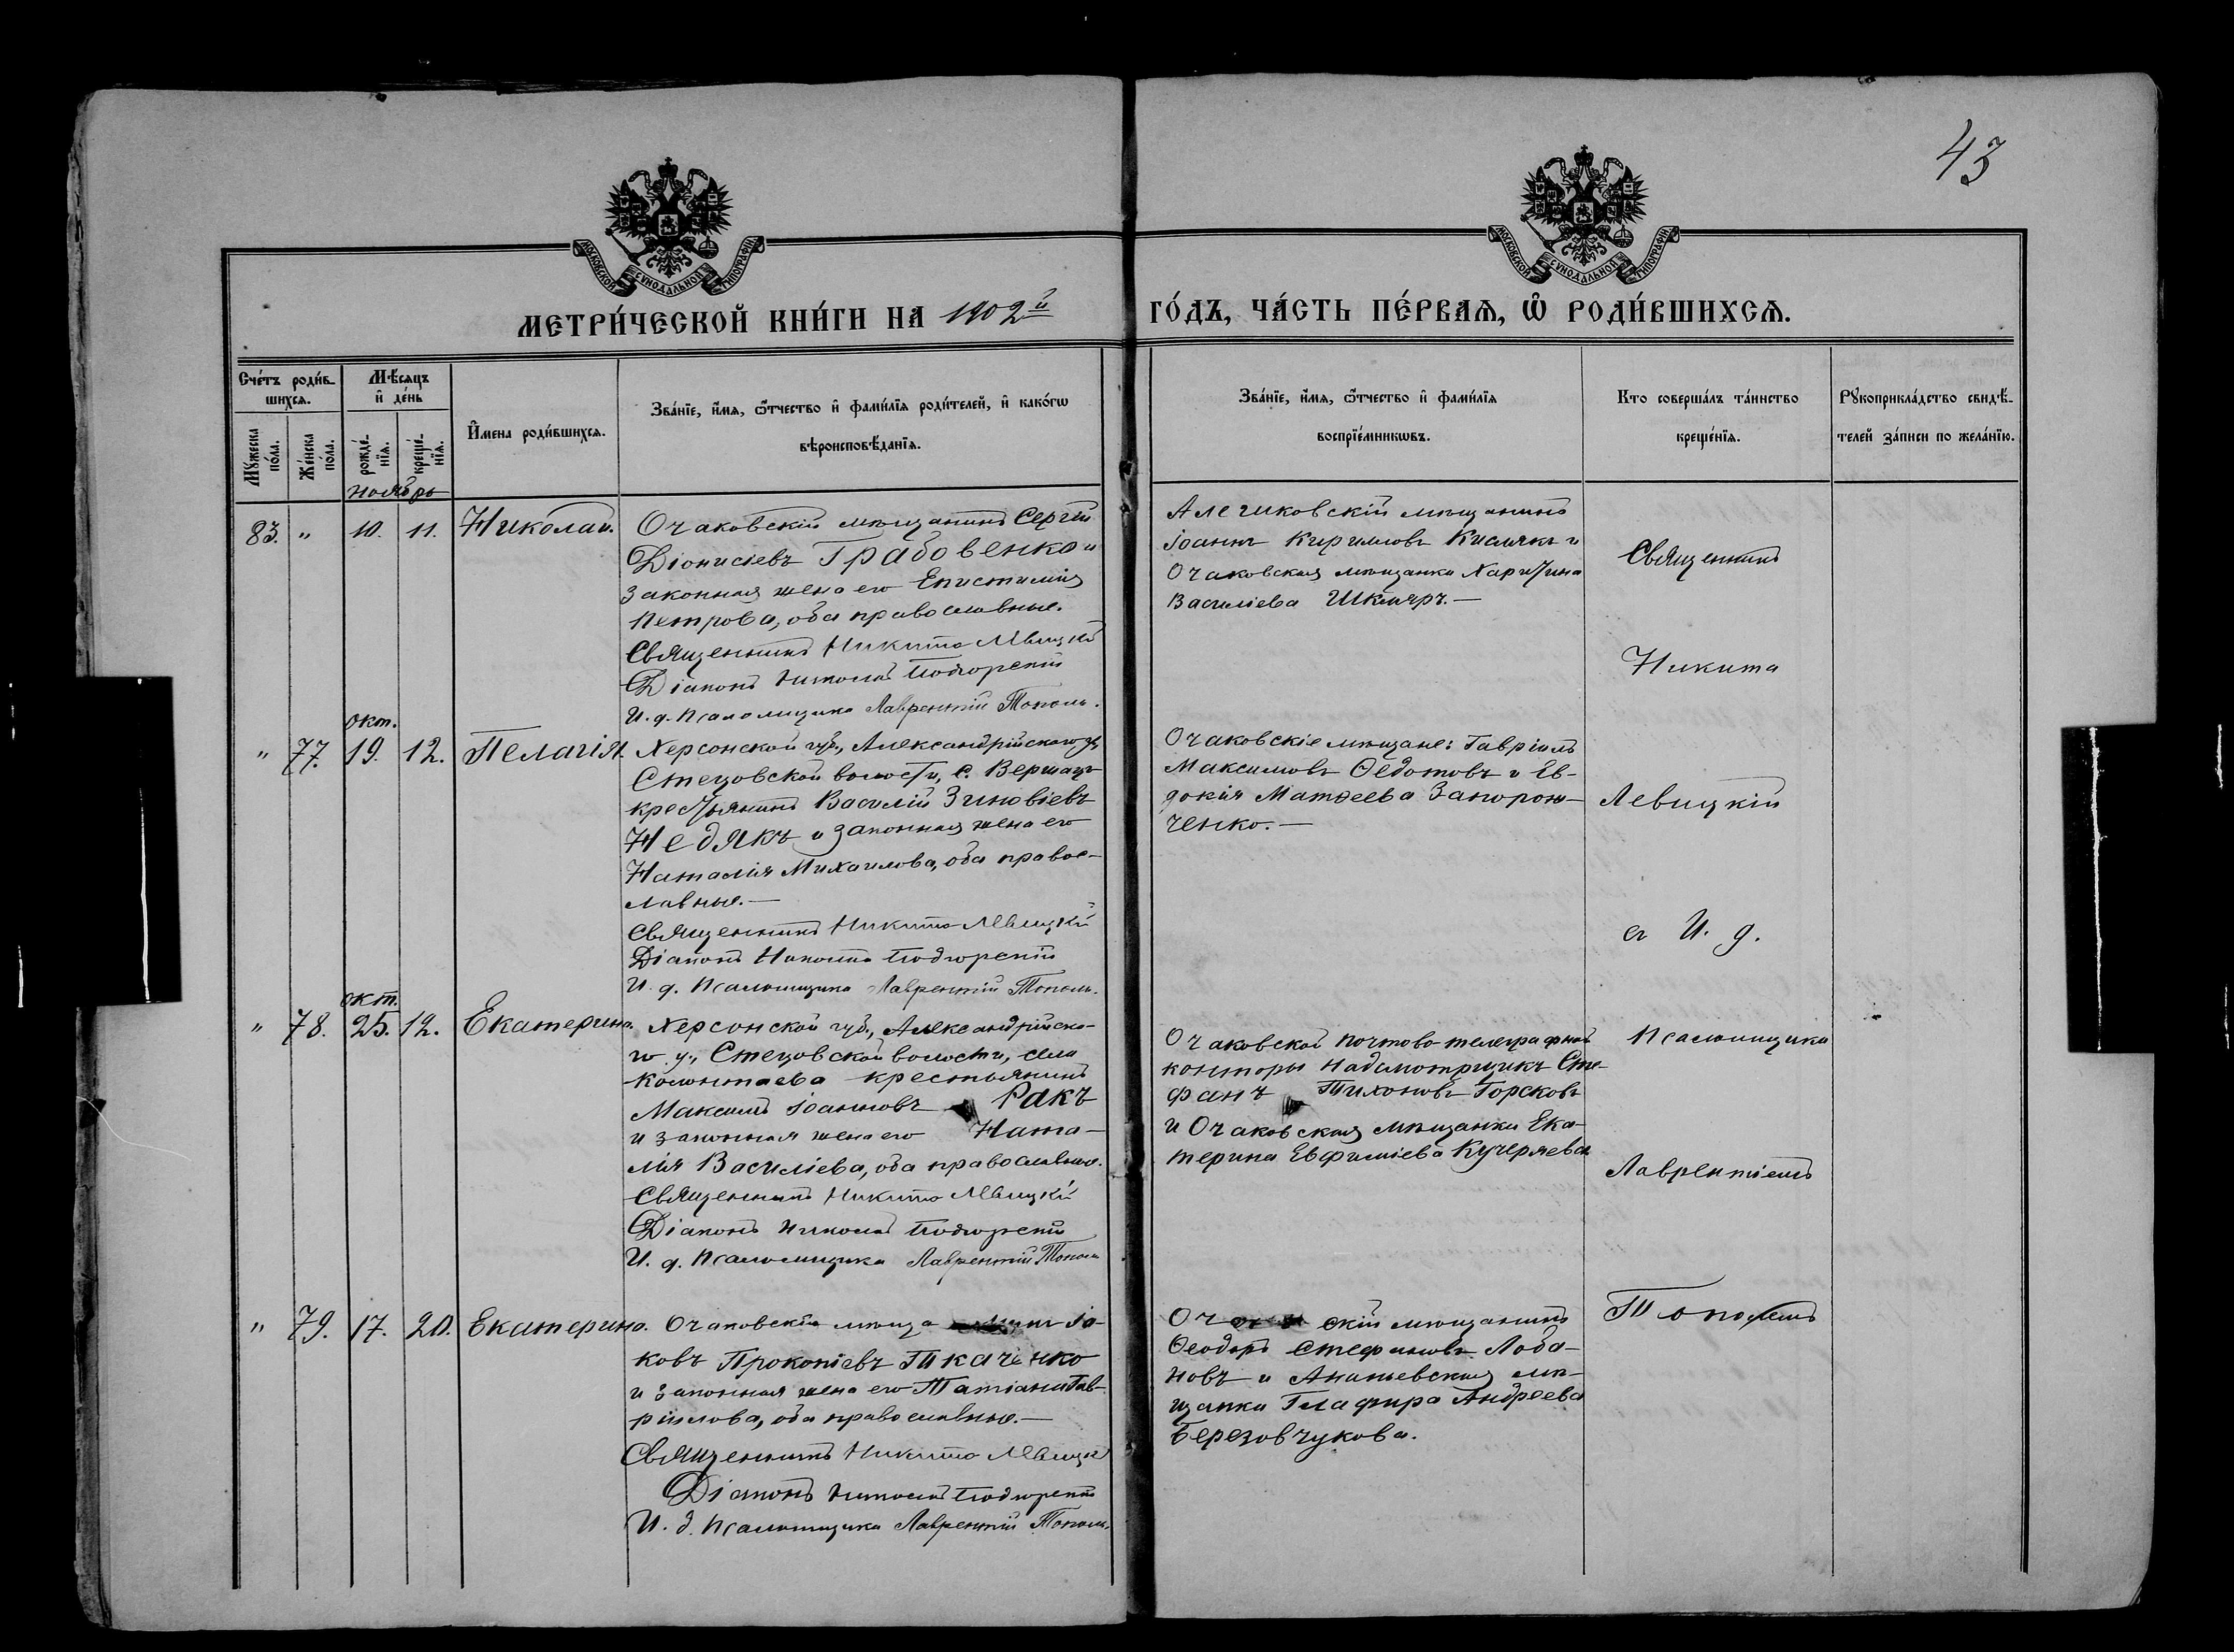 43
МОСКОВСКОЙ СѴНОДАЛЬНОЙ ТИПОГРАФІИ
МОСКОВСКОЙ СѴНОДАЛЬНОЙ ТИПОГРАФІИ
МЕТРИ́ЧЕСКОЙ КНИ́ГИ НА 1902й ГО́ДЪ, ЧА́СТЬ ПЕ́РВАѦ, Ѡ҆ РОДИ́ВШИХСѦ.
Сче́тъ роди́в-
шихсѧ.
Мѣ́сѧцъ
и҆ де́нь
И҆мена роди́вшихсѧ.
Зва́нїе, и҆́мѧ, ѻ҆́тчество и҆ фами́лїѧ роди́телей, и҆ како́гѡ
вѣроисповѣ́данїѧ.
Зва́нїе, и҆́мѧ, ѻ҆́тчество и҆ фами́лїѧ
воспрїе́мникѡвъ.
Кто соверша́лъ та́инство
креще́нїѧ.
Рꙋкоприкла́дство свидѣ́-
телей за́писи по жела́нїю.
Мꙋ́жеска
по́ла.
Же́нска
по́ла.
рожде́-
нїѧ.
креще́-
нїѧ.
Ноябрь
83. " 10. 11. Николай. Очаковскій мѣщанинъ Сергій
Діонисіевъ Грабовенко и
законная жена его Епистимія
Петрова, оба православные.
Священникъ Никита Левицкій
Діаконъ Николай Подгорскій
И. д. Псаломщика Лаврентій Тополь.
Алешковскій мѣщанинъ
Іоаннъ Кирилловъ Кислякъ и
Очаковская мѣщанка Харитина
Василіева Шкляръ.—
Священникъ
Никита
окт.
" 77. 19. 12. Пелагія. Херсонской губ., Александрійскаго у.,
Стецовской волости, с. Вершацъ
крестьянинъ Василій Зиновіевъ
Недякъ и законная жена его
Наталія Михаилова, оба правос-
лавные.—
Священникъ Никита Левицкій
Діаконъ Николай Подгорскій
И. д. Псаломщика Лаврентій Тополь.
Очаковскіе мѣщане: Гавріилъ
Максимовъ Ѳедотовъ и Ев-
докія Матѳеева Запорож-
ченко.—
Левицкій
съ И. д.
окт.
" 78. 25. 12. Екатерина. Херсонской губ., Александрійска-
го у., Стецовской волости, села
Колонтаева крестьянинъ
Максимъ Іоанновъ Ракъ
и законная жена его Ната-
лія Василіева, оба православные.
Священникъ Никита Левицкій
Діаконъ Николай Подгорскій
И. д. Псаломщика Лаврентій Тополь
Очаковской почтово-телеграфной
конторы надсмотрщикъ Сте-
фанъ Тихоновъ Горсковъ
и Очаковская мѣщанка Ека-
терина Евфиміева Кучеряева
Псаломщика
Лаврентіемъ
" 79. 17. 20. Екатерина. Очаковскій мѣща Іа-
ковъ Прокопіевъ Ткаченко
и законная жена его Татіана Гав-
ріилова, оба православные.—
Священникъ Никита Левицкій
Діаконъ Николай Подгорскій
И. д. Псаломщика Лаврентій Тополь.
Оч скій мѣщанинъ
Ѳеодоръ Стефановъ Лоба-
новъ и Ананьевская мѣ-
щанка Глафира Андреева
Березовчукова.
Тополемъ